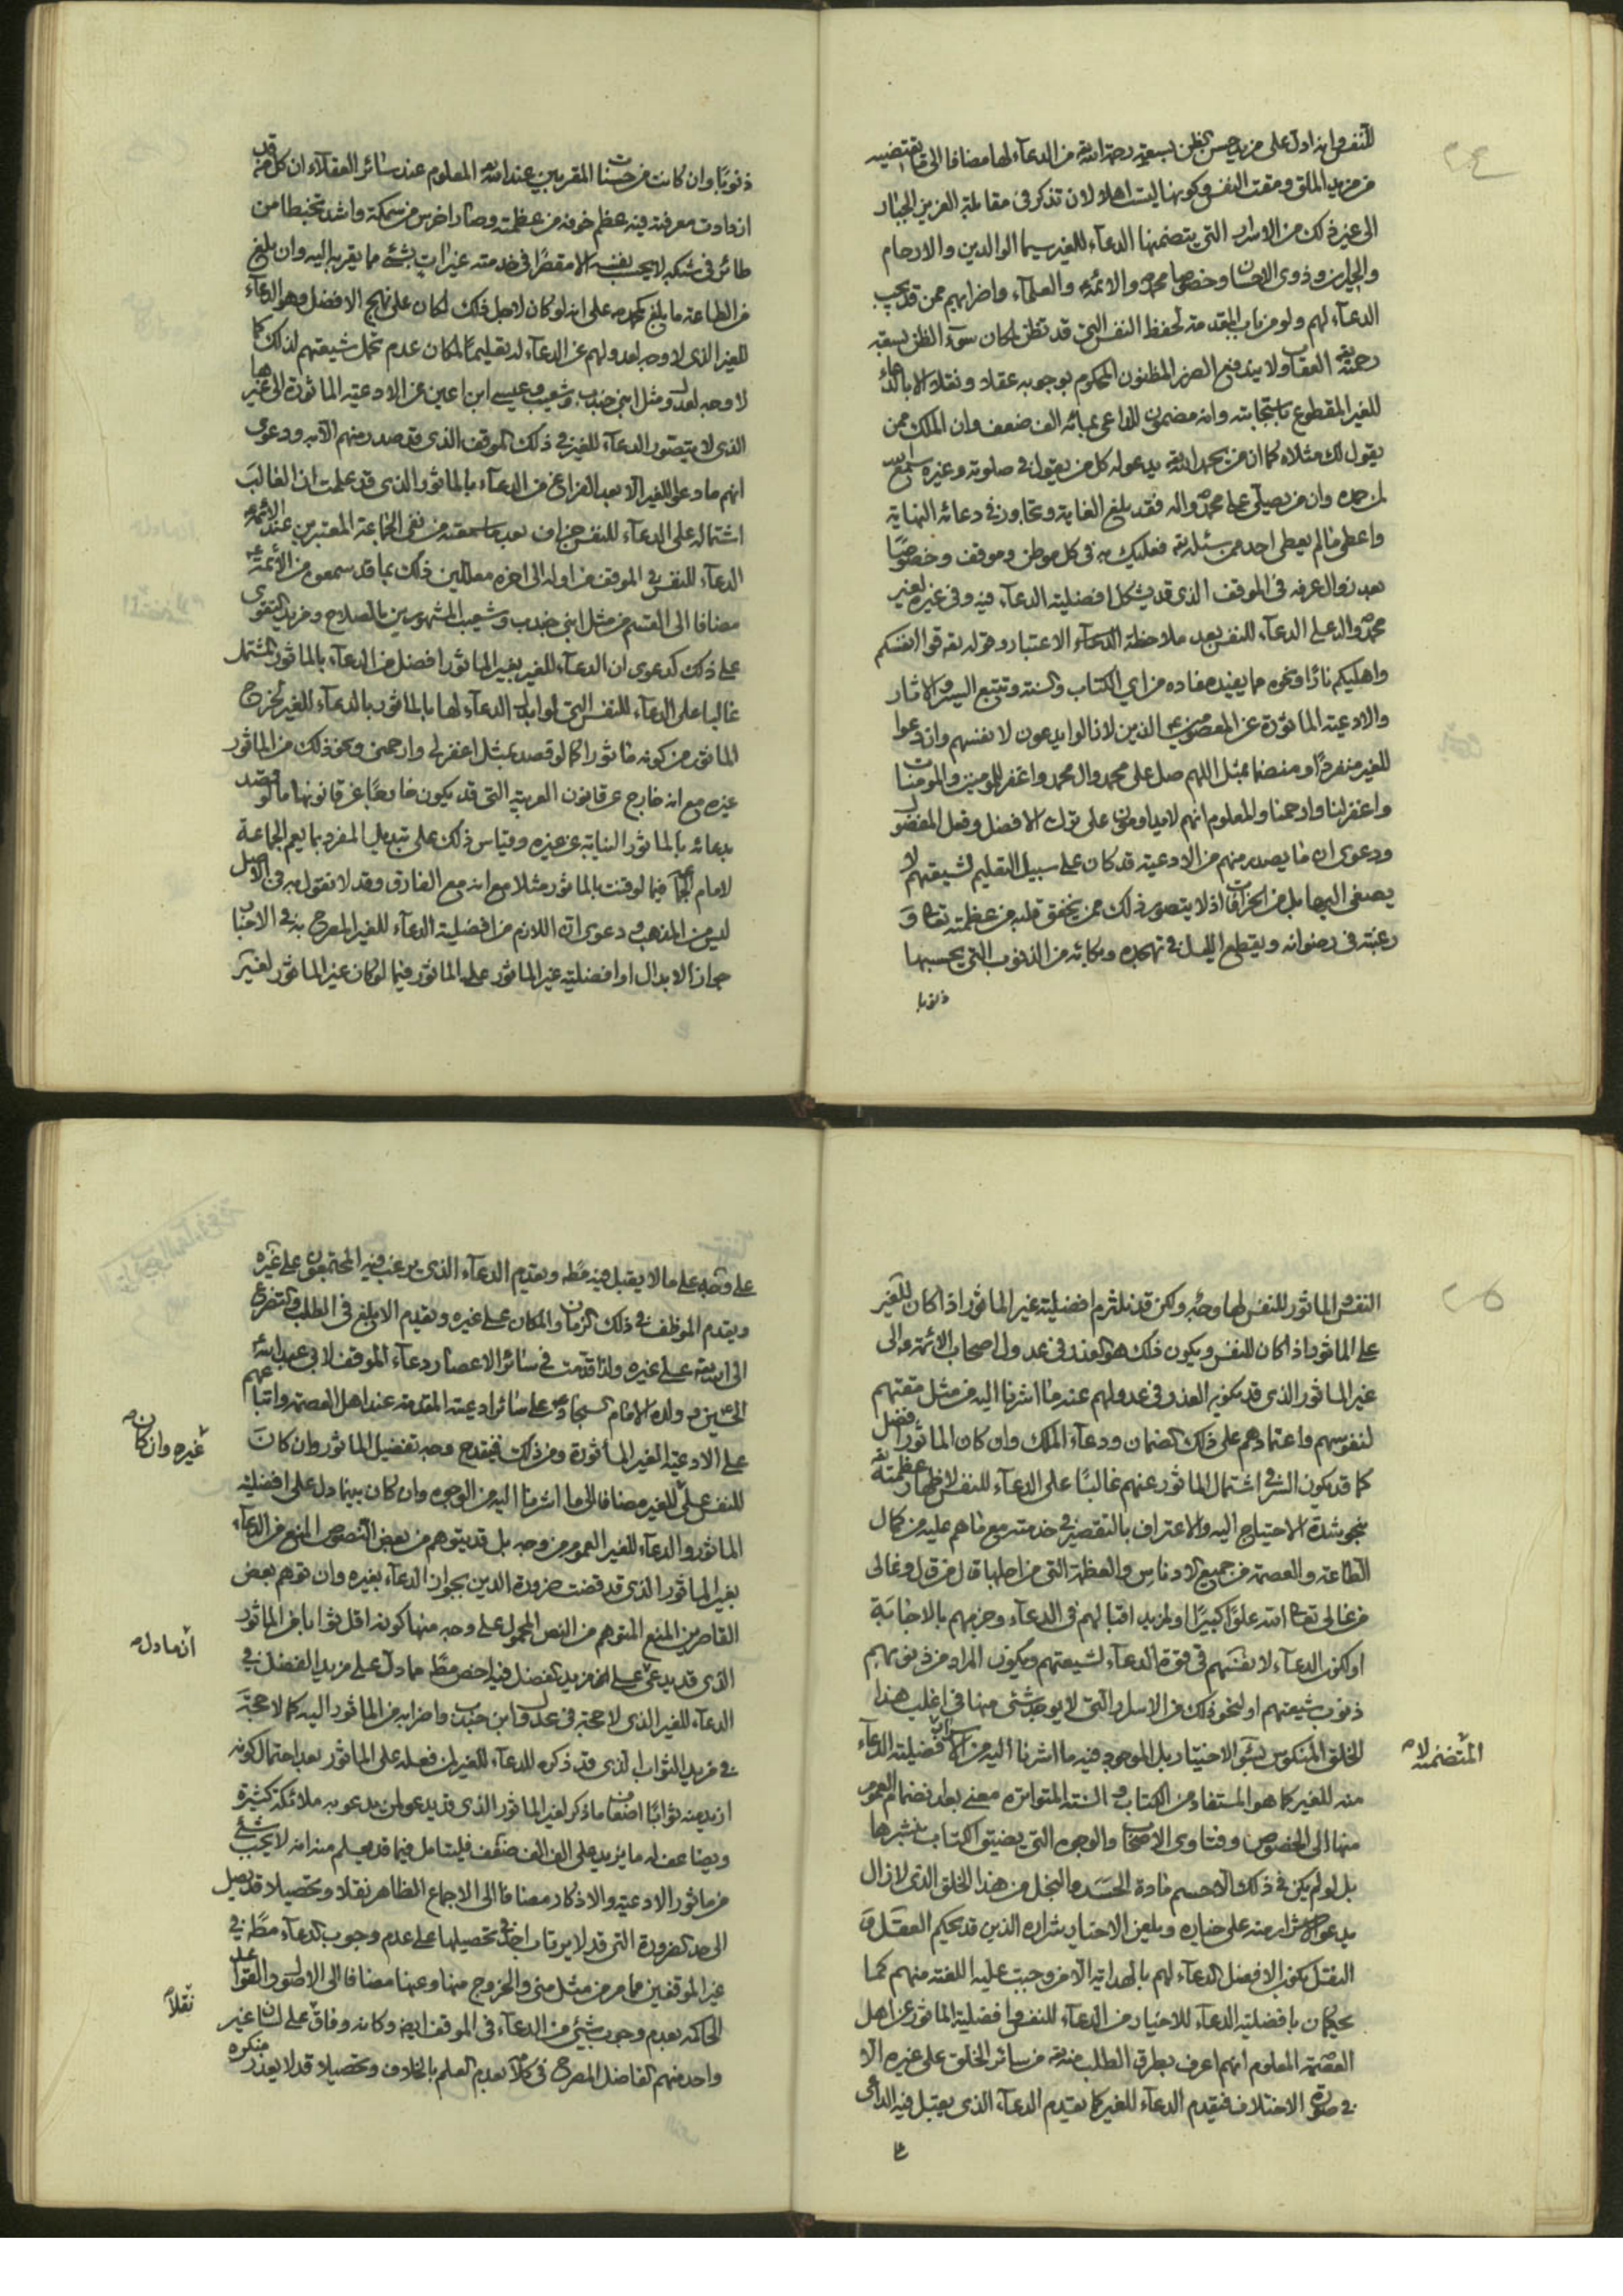 ٢٤
للنفس انه ادل على مزيد حسن الظن بسعة رحمة الله تعه من الدعآء لها مضافا الى ما يقتضيه
من مزيد الملق ومقت النفس وكونها ليست اهلا لان تذكر في مقابلة العزيز الجبار
الى غير ذلك من الاسرار التي يتضمنها الدعآء للغير سيما الوالدين والارحام
والجيران وذوى الاحسان وخصوصا محمد والائمة والعلمآء واضرابهم ممن قد يجب
الدعآء لهم ولو من باب المقدمة لحفظ النفس التي قد تظن لمكان سوء الظن بسعة
رحمته تعه العقاب ولا يندفع الضرر المظنون المحكوم بوجوبه عقلا ونقلا الا بالدعاء
للغير المقطوع باستجابته وانه مضمون للداعى بمائة الف ضعف وان الملك ممن
يقول لك مثلاه كما ان من يحمد الله تعه يدعو له كل من يقول في صلوته وغيره سمع الله
لمن حمده وان من يصلى على محمد واله فقد بلغ الغاية وتجاوز في دعائه النهاية
واعطى ما لم يعطى احد ممن سئله تعه فعليك به في كل موطن وموقف وخصوصًا
بعد زوال عرفه في الموقف الذى قد يشكل افضلية الدعآء فيه وفي غيره لغير
محمد واله على الدعآء للنفس بعد ملاحظة الاعتبار وقوله تعه قوا انفسكم
واهليكم نارًا ونحوه مما يفيد مفاده من اي الكتاب والسنة وتتبع السير والاثار
والادعية الماثورة عن المعصومين الذين لا زالوا يدعون لانفسهم وان دعوا
للغير منفردًا او منضما بمثل اللهم صل على محمد وال محمد واغفر للمومنين والمومنات
واغفر لنا وارحمنا والمعلوم انهم لا يداومون على ترك الافضل وفعل المفضول
ودعوى ان ما يصدر منهم من الادعية قد كان على سبيل التعليم لشيعتهم لا
يصغى اليها بل من الخرافات اذ لا يتصور ذلك ممن يخفق قلبه من عظمته تعالى و
رغبته في رضوانه ويقطع الليل في تهجده وبكائه من الذنوب التي يحسبها
ذنوبا
ذنوبًا وان كانت من حسنات المقربين عند الله المعلوم عند سائر العقلآء ان كل من قد
ازدادت معرفته فيه عظم خوفه من عظمته وصار اخرس من سمكة واشد تخبطا من
طائر في شبكة لا يحسب نفسه الا مقصرًا في خدمته غير ات بشئ مما يقربه اليه وان بلغ
من الطاعة ما بلغ على انه لو كان لاجل ذلك لكان على نهج الافضل وهو الدعآء
للغير الذى لا وجه لعدولهم عن الدعآء له تعليمًا لمكان عدم تحمل شيعتهم لذلك كما
لا وجه لعدول مثل ابني جندب وشعيب وعيسى ابن اعين عن الادعية الماثورة الى غيرها
الذى لا يتصور الدعآء للغير في ذلك الموقف الذى قد صدر منهم الا به ودعوى
انهم ما دعوا للغير الا بعد الفراغ من الدعآء بالماثور الذى قد علمت ان الغالب
اشتماله على الدعآء للنفس جزاف بعد ما سمعته من نفى الجماعة المعتبرين عند الائمة
الدعآء للنفس في الموقف من اوله الى اخره معللين ذلك بما قد سمعوه من الائمة
مضافا الى القسم من مثل ابني جندب وشعيب المشهورين بالصلاح ومزيد التقوى
على ذلك كدعوى ان الدعآء للغير بغير الماثور افضل من الدعآء بالماثور المشتمل
غالبا على الدعآء للنفس التي لو ابدل الدعآء لها بالماثور بالدعآء للغير لخرج
الماثور من كونه ماثورا كما لو قصد بمثل اغفر لى وارحمنى ونحو ذلك من الماثور
غيره مع انه خارج عن قانون العربية التي قد يكون خارجًا عن قانونها ما لو قصد
بدعائه بالماثور النيابة عن غيره وقياس ذلك على تبديل المفرد بما يعم الجماعة
لامام الجماعة فيما لو قنت بالماثور مثلا مع انه مع الفارق وقد لا نقول به في الاصل
ليس من المذهب ودعوى ان اللازم من افضلية الدعآء للغير المصرح به في الاخبار
جواز الابدال او افضلية غير الماثور على الماثور فيما لو كان غير الماثور لغير
٢٥
النفس والماثور للنفس لها وجه ولكن قد نلتزم افضلية غير الماثور اذا كان للغير
على الماثور اذا كان للنفس ويكون ذلك هو العذر في عدول اصحاب الائمة الى
غير الماثور الذى قد يكون العذر في عدولهم عنه ما اشرنا اليه من مثل مقتهم
لنفوسهم واعتمادهم على ذلك الضمان ودعآء الملك وان كان الماثور افضل
كما قد يكون السر في اشتمال الماثور عنهم غالبًا على الدعآء للنفس لاظهار عظمته تعه
بنحو شدة الاحتياج اليه والاعتراف بالتقصير في خدمته مع ما هم عليه من كمال
الطاعة والعصمة من جميع الادناس والعظمة التي من اجلها قال من قال وغالى
من غالى تعالى الله علوًا كبيرًا او لمزيد اقبالهم في الدعآء وجزمهم بالاجابة
او لكون الدعآء لانفسهم في قوة الدعآء لشيعتهم ويكون المراد من ذنوبهم
ذنوب شيعتهم او لنحو ذلك من الاسرار التي لا يوجد شئ منها في اغلب هذا
الخلق المنكوس بسوء الاختيار بل الموجود فيه ما اشرنا اليه من الاسباب لافضلية الدعآء
المتضمنة لا
منه للغير كما هو المستفاد من الكتاب والسنة المتواترة معنى بعد انضمام العموم
منها الى الخصوص وفتاوى الاصحاب والوجوه التي يضيق الكتاب بنشرها
بل لو لم يكن في ذلك الا حسم مادة الحسد والبخل من هذا الخلق الذى لا زال
يدعو شراره على خياره ويلعن الاخيار شراره الذين قد يحكم العقل و
النقل بكون الافضل الدعآء لهم بالهداية الا من وجبت عليه اللعنة منهم كما
يحكمان بافضلية الدعآء للاخيار من الدعآء للنفس وافضلية الماثور عن اهل
العصمة المعلوم انهم اعرف بطرق الطلب منه تعه من سائر الخلق على غيره الا
في صورة الاختلاف فيقدم الدعآء للغير كما يقدم الدعآء الذى يقبل فيه الداعى
على
على وجه على ما لا يقبل فيه مطه ويقدم الدعآء الذى يرغب فيه المجتمعون على غيره
ويقدم الموظف في ذلك الزمان والمكان على غيره ويقدم الابلغ في الطلب والتضرع
الى الله تعه على غيره ولذا قدمت في سائر الاعصار دعآء الموقف لابى عبد الله
الحسين وولده الامام السجاد على سائر ادعيته المقدمة عند اهل العصمة واتباعهم
على الادعية الغير المأثورة ومن ذلك فيقدح وجه تفضيل الماثور وان كان
غيره وان كان
للنفس على الغير مضافا الى ما اشرنا اليه من الوجوه وان كان بين ما دل على افضلية
الماثور والدعآء للغير العموم من وجه بل قد يتوهم من بعض النصوص المنع من الدعآء
بغير الماثور الذى قد قضت ضرورة الدين بجواز الدعآء بغيره وان توهم بعض
القاصرين المنع المتوهم من النص المحمول على وجه منها كونه اقل ثوابا من الماثور
ان ما دل
الذى قد يدعى على مزيد الفضل فيه اخص مطه مما دل على مزيد الفضل في
الدعآء للغير الذى لا حجة في عدول ابن جندب واضرابه من الماثور اليه كما لا حجة
في مزيد الثواب الذى قد ذكره للدعآء للغير لمن فعله على الماثور بعد احتمال كونه
ازيد منه ثوابًا اضعاف ما ذكر لغير الماثور الذى قد يدعو لمن يدعو به ملائكة كثيرة
ويضاعف له ما يزيد على الف الف ضعف فليتامل فيما قد يعلم منه انه لا يجب شئ
من ماثور الادعية والاذكار مضافا الى الاجماع الظاهر نقلا وتحصيلا قد يصل
الى حد الضرورة التي قد لا يرتاب احد في تحصيلها على عدم وجوب الدعآء مطه في
غير الموقفين مما مر من مثل منى والخروج منها وعنها مضافا الى الاصول والقواعد
نقلا
الحاكمة بعدم وجوب شئ من الدعآء في الموقف ايضا وكانه وفاق على لسان غير
واحد منهم الفاضل المصرح في كلامه بعدم العلم بالخلاف وتحصيلا قد لا يعذر منكره